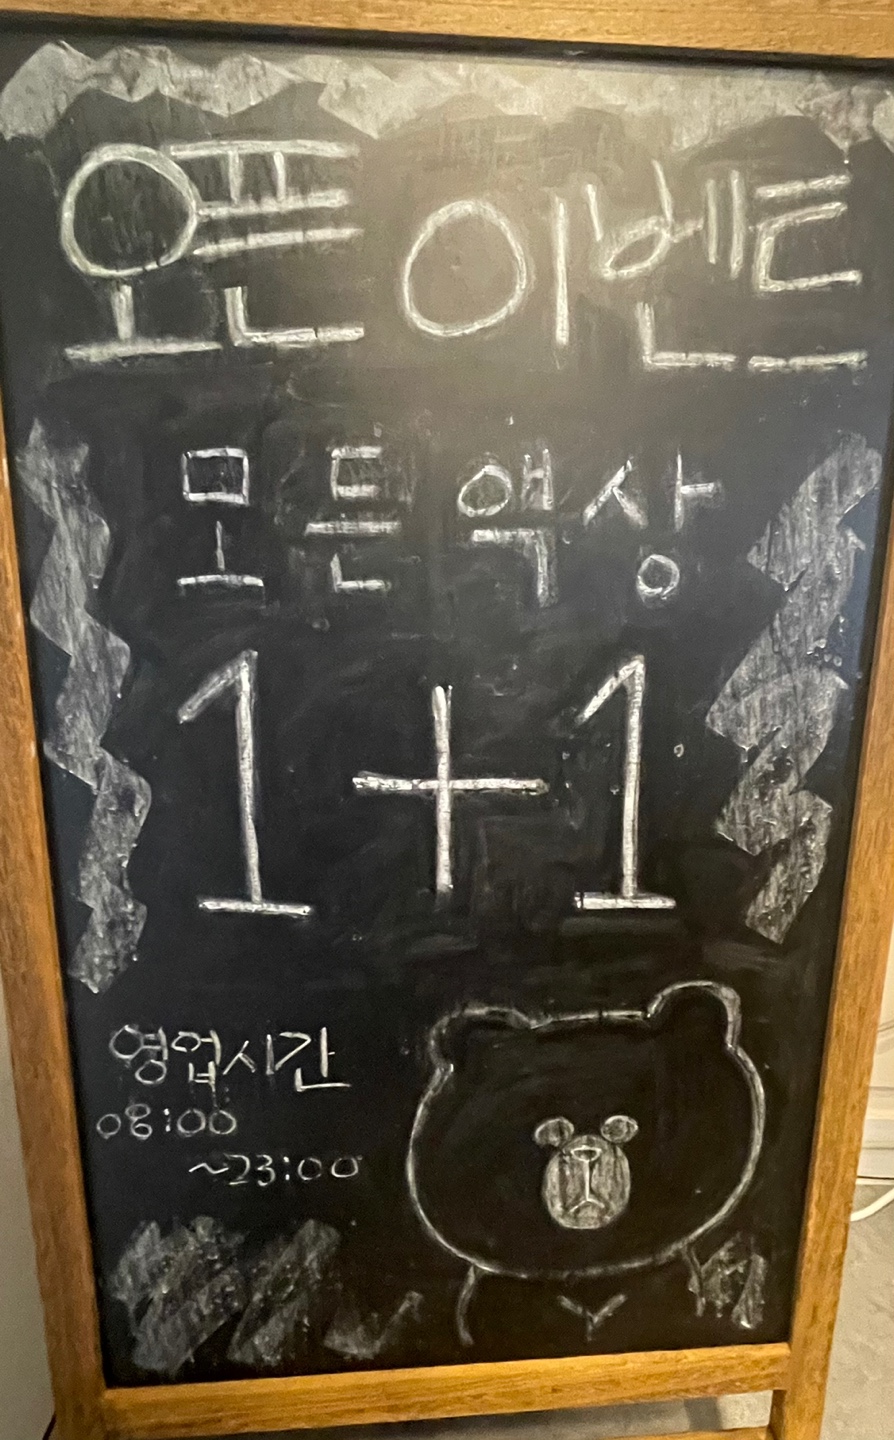 오픈 이벤트
모든 액상
1+1
영업시간
08:00
~23:00